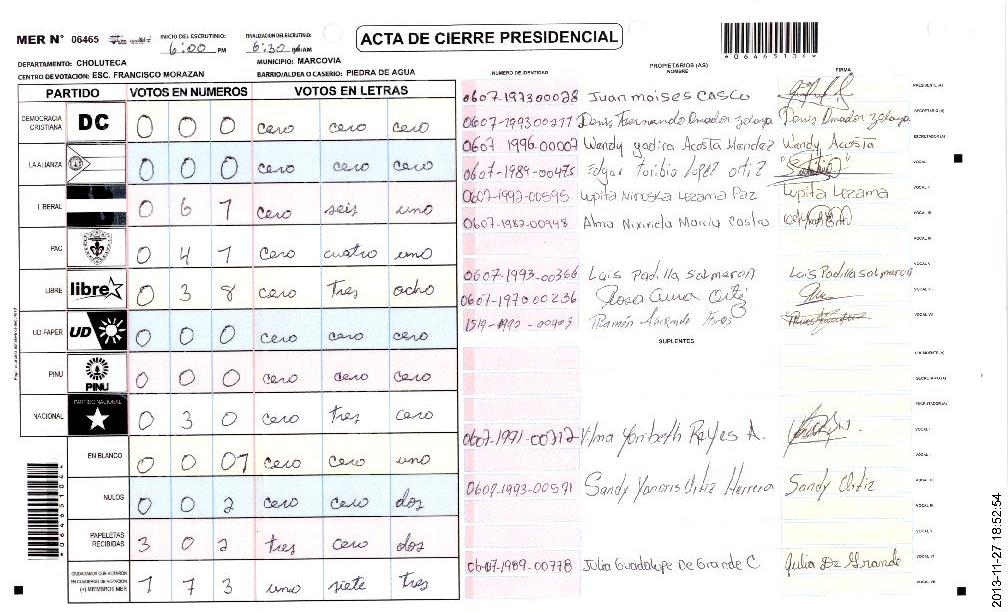 MER N° 06465
INICIO DEL ESCRUTINIO: 6:00 PM
FINALIZACION DEL ESCRUTINIO: 6:30
ACTA DE CIERRE PRESIDENCIAL
*06465104*
DEPARTAMENTO: CHOLUTECA
MUNICIPIO: MARCOVIA
CENTRO DE VOTACION: ESC. FRANCISCO MORAZAN
BARRIO/ALDEA O CASERIO: PIEDRA DE AGUA
PARTIDO VOTOS EN NUMEROS VOTOS EN LETRAS
DEMOCRACIA CRISTIANA DC 0 0 0 cero cero cero
LA ALIANZA 0 0 0 cero cero cero
LIBERAL 0 6 1 cero seis uno
PAC 0 4 1 cero cuatro uno
LIBRE libre 0 3 8 cero tres ocho
UD-FAPER UD 0 0 0 cero cero cero
PINU PINU 0 0 0 cero cero cero
NACIONAL PARTIDO NACIONAL 0 3 0 cero tres cero
EN BLANCO 0 0 01 cero cero uno
NULOS 0 0 2 cero cero dos
PAPELETAS RECIBIDAS 3 0 2 tres cero dos
CIUDADANOS QUE VOTARON EN CUADERNO DE VOTACION (+) MIEMBROS MER 1 7 3 uno siete tres
*06465104*
NUMERO DE IDENTIDAD
PROPIETARIOS (AS)
NOMBRE
FIRMA
0607-197300028 Juan moises CASCO PRESIDENTE (A)
0607-199300277 Denis Fernando Amador zelaya Denis Amador zelaya SECRETARIO (A)
0607-1996-00009 Wendy yadira Acosta Mendez Wendy Acosta ESCRUTADOR (A)
0607-1989-00475 Edgar Toribio Lopez ortiz VOCAL I
0607-1993-00595 Lupita Niruska Lezama Paz Lupita Lezama VOCAL II
0607-1982-00948 Alma Nixinda Marcia Castro VOCAL III
VOCAL IV
0607-1993-00366 Luis Padilla salmeron Luis Padilla salmeron VOCAL V
0607-1970 00236 Rosa Ortiz VOCAL VI
1519-1990-00403 Ramón VOCAL VII
SUPLENTES
PRESIDENTE (A)
SECRETARIO (A)
ESCRUTADOR (A)
0607-1991-00212 Vilma Yoribeth Reyes A. VOCAL I
VOCAL II
0607-1993-00591 Sandy Yanoris Ortiz Herrera Sandy Ortiz VOCAL III
VOCAL IV
VOCAL V
0607-1989-00778 Julia Guadalupe De Grande C. Julia De Grande VOCAL VI
VOCAL VII
2013-11-27 18:52:54